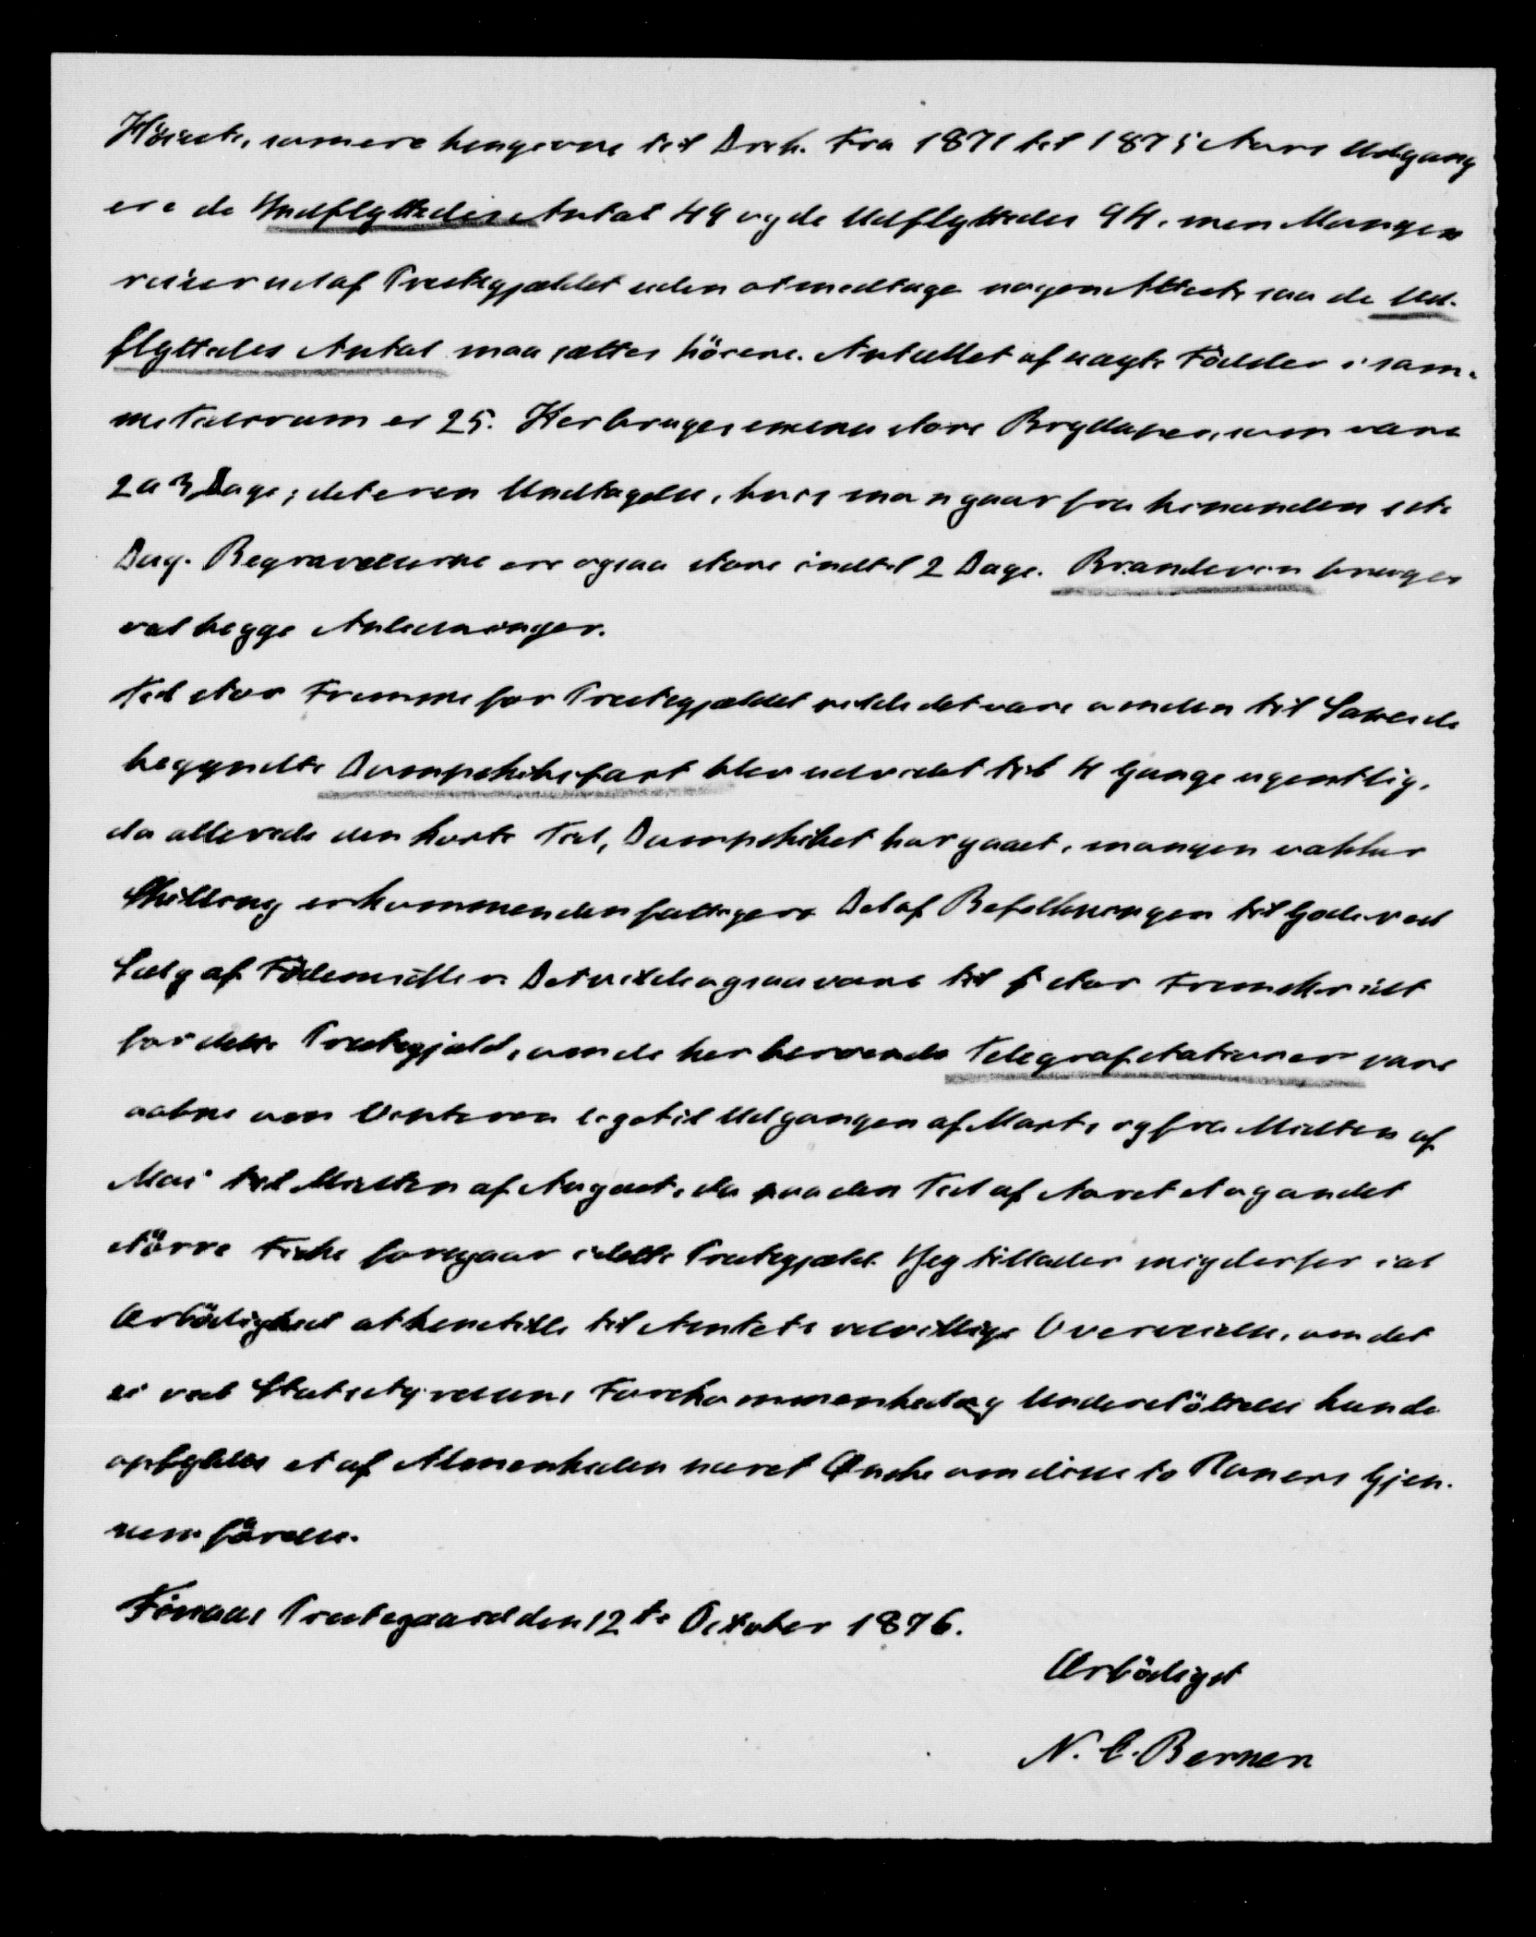 Höieste, som ere hengivne til Drik. Fra 1871 til 1875 Aars Udgang
ere de Indflyttedes Antal 49 og de Udflyttedes 94, men Mangen
reiser ud af Præstegjældet uden at medtage nogen Attest, saa de Ud-
flyttedes Antal maa sættes höiere. Antallet af uægte Födsler i sam-
me Tidsrum er 25. Her bruges ennu store Brylluper, som vare
2 a 3 Dage; det er en Undtagelse, hvis man gaar fra hinanden 1ste
Dag. Begravelserne ere ogsaa store indtil 2 Dage. Brændevin bruges
ved begge Anledninger.
Til stor Fremme for Præstegjældet vilde det være om den til
begyndte Dampskibsfart blev udvidet til 4 Gange ugentlig,
da allerede den korte Tid, Dampskibet har gaaet, mangen vakker
Skilling er kommen den fattigere Del af Befolkningen til Gode ved
Salg af Födemidler. Det vilde ogsaa være til stor Fremskridt
for dette Præstegjæld, om de her værende Telegrafstationer vare
aabne om Vinteren lige til Udgangen af Marts og fra Midten af
Mai til Midten af August, da paa den Tid af Aaret
större Fiske foregaar i dette Præstegjæld. Jeg tillader mig derfor i al
Ærbödighed at henstille til Amtets velvillige Overveielse, om det
ei ved Statsstyrelsens Forekommenhed og Understöttelse kunde
opfyldes et af Almenheden næret Ønske om disse to Planers Gjen-
nemförelse.
Finnaas Præstegaard den 12te October 1876.
Ærbödigst
N. C. Berner